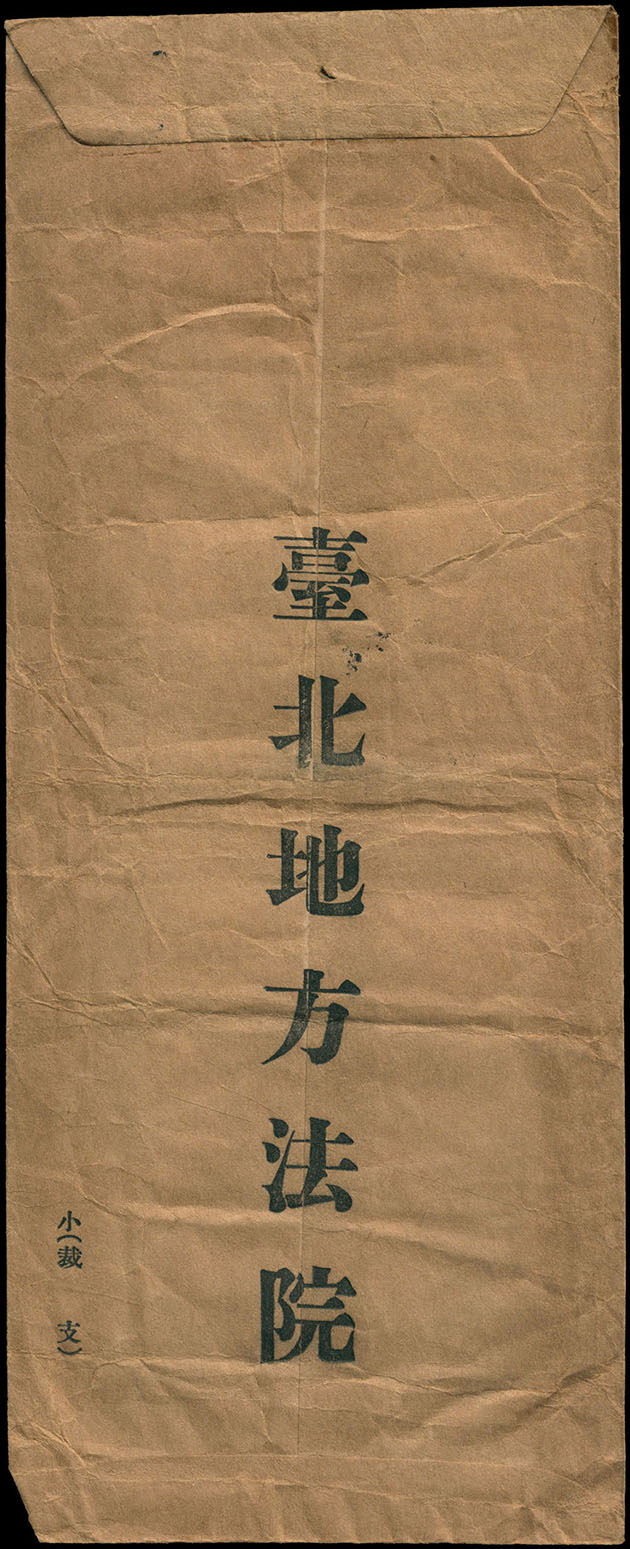 臺北地方法院
小(裁 支)